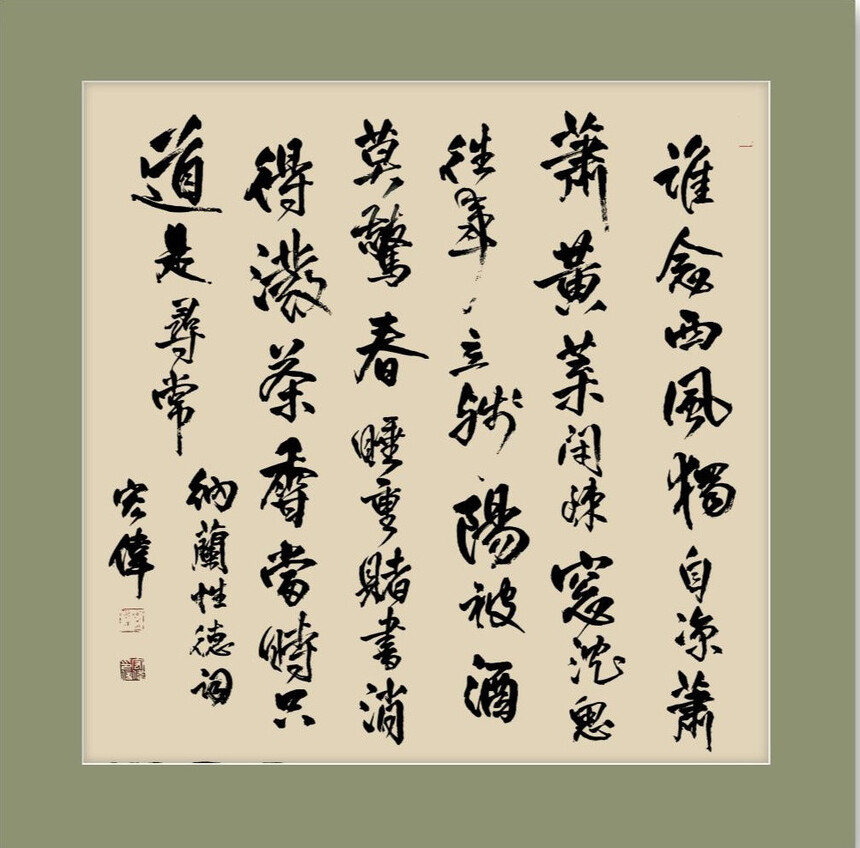 誰念西風獨自涼蕭
蕭黃葉閉疎窗沈思
往事立殘陽被酒
莫驚春睡重賭書消
得潑茶香當時只
道是尋常
納蘭性德詞
宏偉